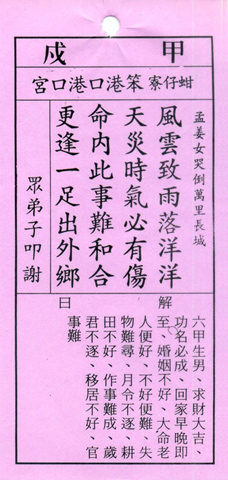 甲戌
蚶仔寮笨港口港口宮
孟姜女哭倒萬里長城
風雲致雨落洋洋
天災時氣必有傷
命內此事難和合
更逢一足出外鄉
眾弟子叩謝
解曰
六甲生男、求財大吉、
功名必成、回家早晚即
至、婚姻不好、大命老
人便好、不好便難、失
物難尋、月令不逐、耕
田不好、作事難成、歲
君不逐、移居不好、官
事難